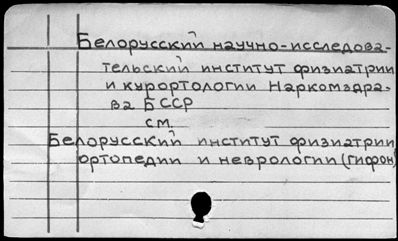 Белорусский научно-исследова-
тельский институт физиатрии
и курортологии Наркомздра-
ва БССР
см.
Белорусский институт физиатрии
ортопедии и неврологии (Гифрон)